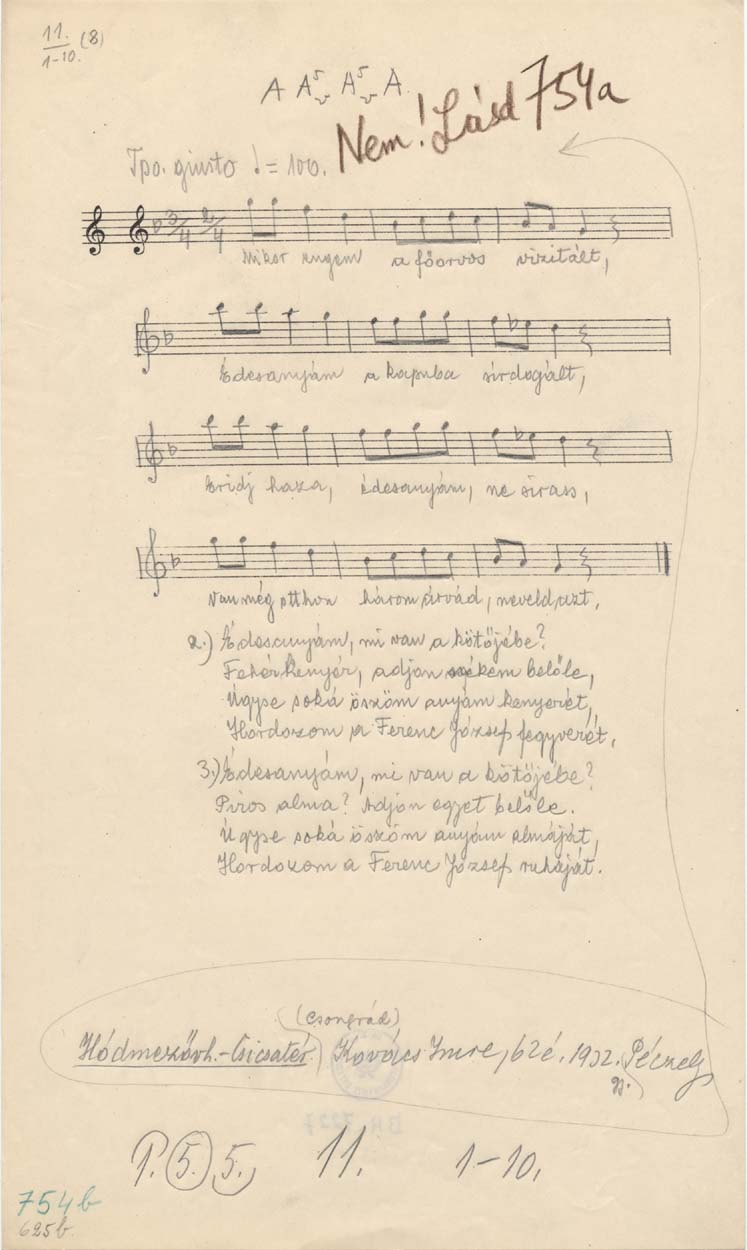 11. (8)
1-10.
A A⁵ᵥ A⁵ᵥ A.
Nem! Lásd 754a
Tpo. giusto ♩= 100.
3/4 2/4
Mikor engem a főorvos vizitált,
Édesanyám a kapuba sirdogált,
Eridj haza, édesanyám, ne sirass,
Van még otthon három árvád, neveld azt.
2.) Édesanyám, mi van a kötőjébe?
Fehér kenyér, adjon nékem belőle,
Úgyse soká öszöm anyám kenyerét,
Hordozom a Ferenc József fegyverét.
3.) Édesanyám, mi van a kötőjébe?
Piros alma? Adjon egyet belőle.
Úgyse soká öszöm anyám almáját,
Hordozom a Ferenc József ruháját.
(Csongrád)
Hódmezővh.-Csicsatér. Kovács Imre, 62é. 1932. Péczely
P. 5. 5. 11. 1-10.
754b
625b.